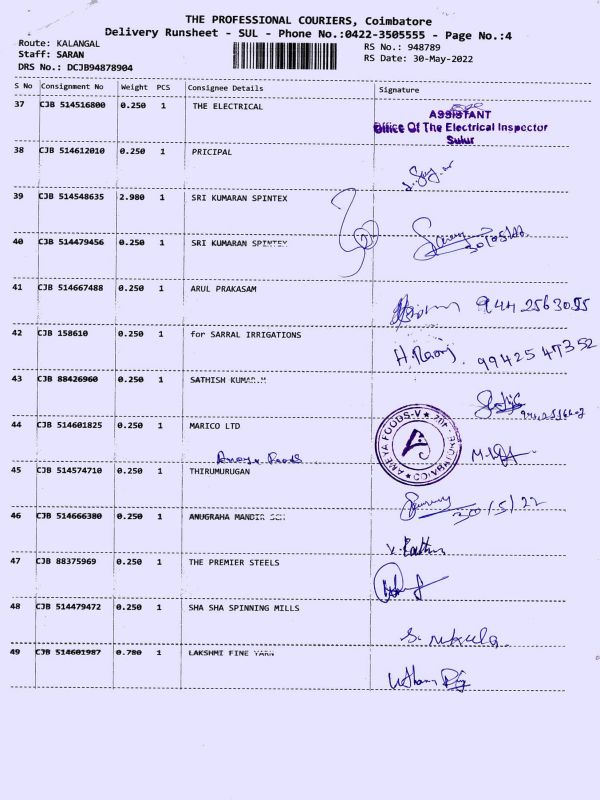 THE PROFESSIONAL COURIERS, Coimbatore
Delivery Runsheet - SUL - Phone No.:0422-3505555 - Page No.:4
Route: KALANGAL
Staff: SARAN
DRS No.: DCJB94878904
RS No.: 948789
RS Date: 30-May-2022
S No Consignment No Weight PCS Consignee Details Signature
37 CJB 514516800 0.250 1 THE ELECTRICAL
ASSISTANT
Office Of The Electrical Inspector
Sulur
38 CJB 514612010 0.250 1 PRICIPAL
39 CJB 514548635 2.980 1 SRI KUMARAN SPINTEX
30/05/22
40 CJB 514479456 0.250 1 SRI KUMARAN SPINTEX
41 CJB 514667488 0.250 1 ARUL PRAKASAM
9442563055
42 CJB 158610 0.250 1 for SARRAL IRRIGATIONS
9942547352
43 CJB 88426960 0.250 1 SATHISH KUMAR.M
44 CJB 514601825 0.250 1 MARICO LTD
AMEYA FOODS-V
45 CJB 514574710 0.250 1 THIRUMURUGAN
30/5/22
46 CJB 514666380 0.250 1 ANUGRAHA MANDIR SCH
47 CJB 88375969 0.250 1 THE PREMIER STEELS
48 CJB 514479472 0.250 1 SHA SHA SPINNING MILLS
49 CJB 514601987 0.780 1 LAKSHMI FINE YARN